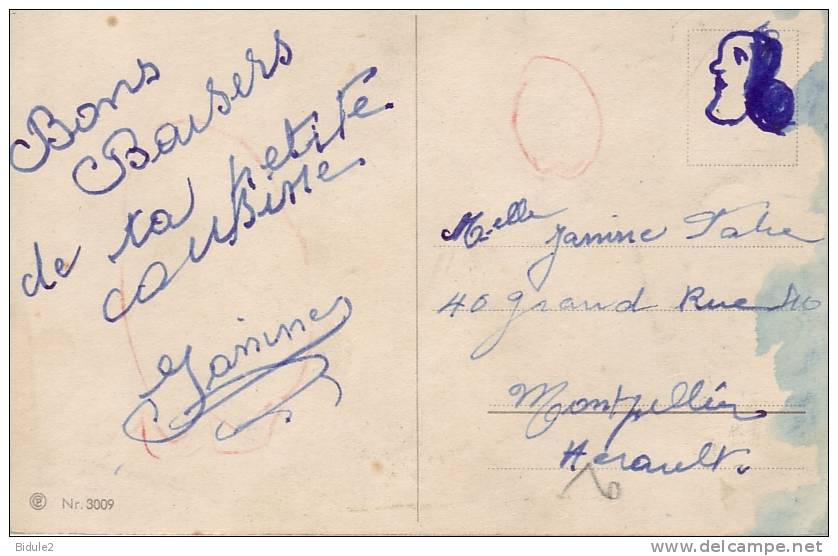 Bons
Baisers
de ta petite
cousine
Janine
Nr. 3009
Bidule2
M.elle
Janine
40 grand Rue
Montpellier
Herault.
www.delcampe.net